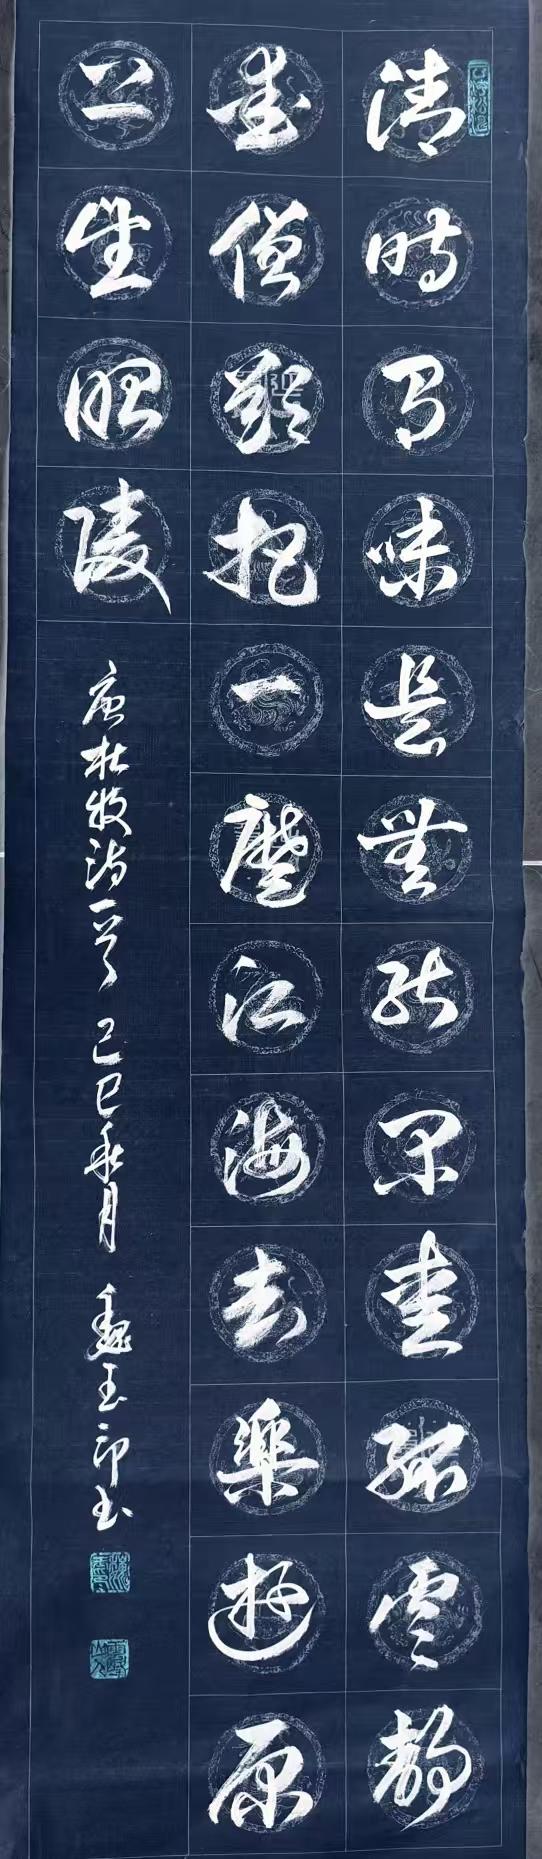 清時有味是無能閒愛孤雲靜
愛僧欲把一麾江海去樂遊原
上望昭陵
唐杜牧詩一首 己巳秋月 魏玉印书